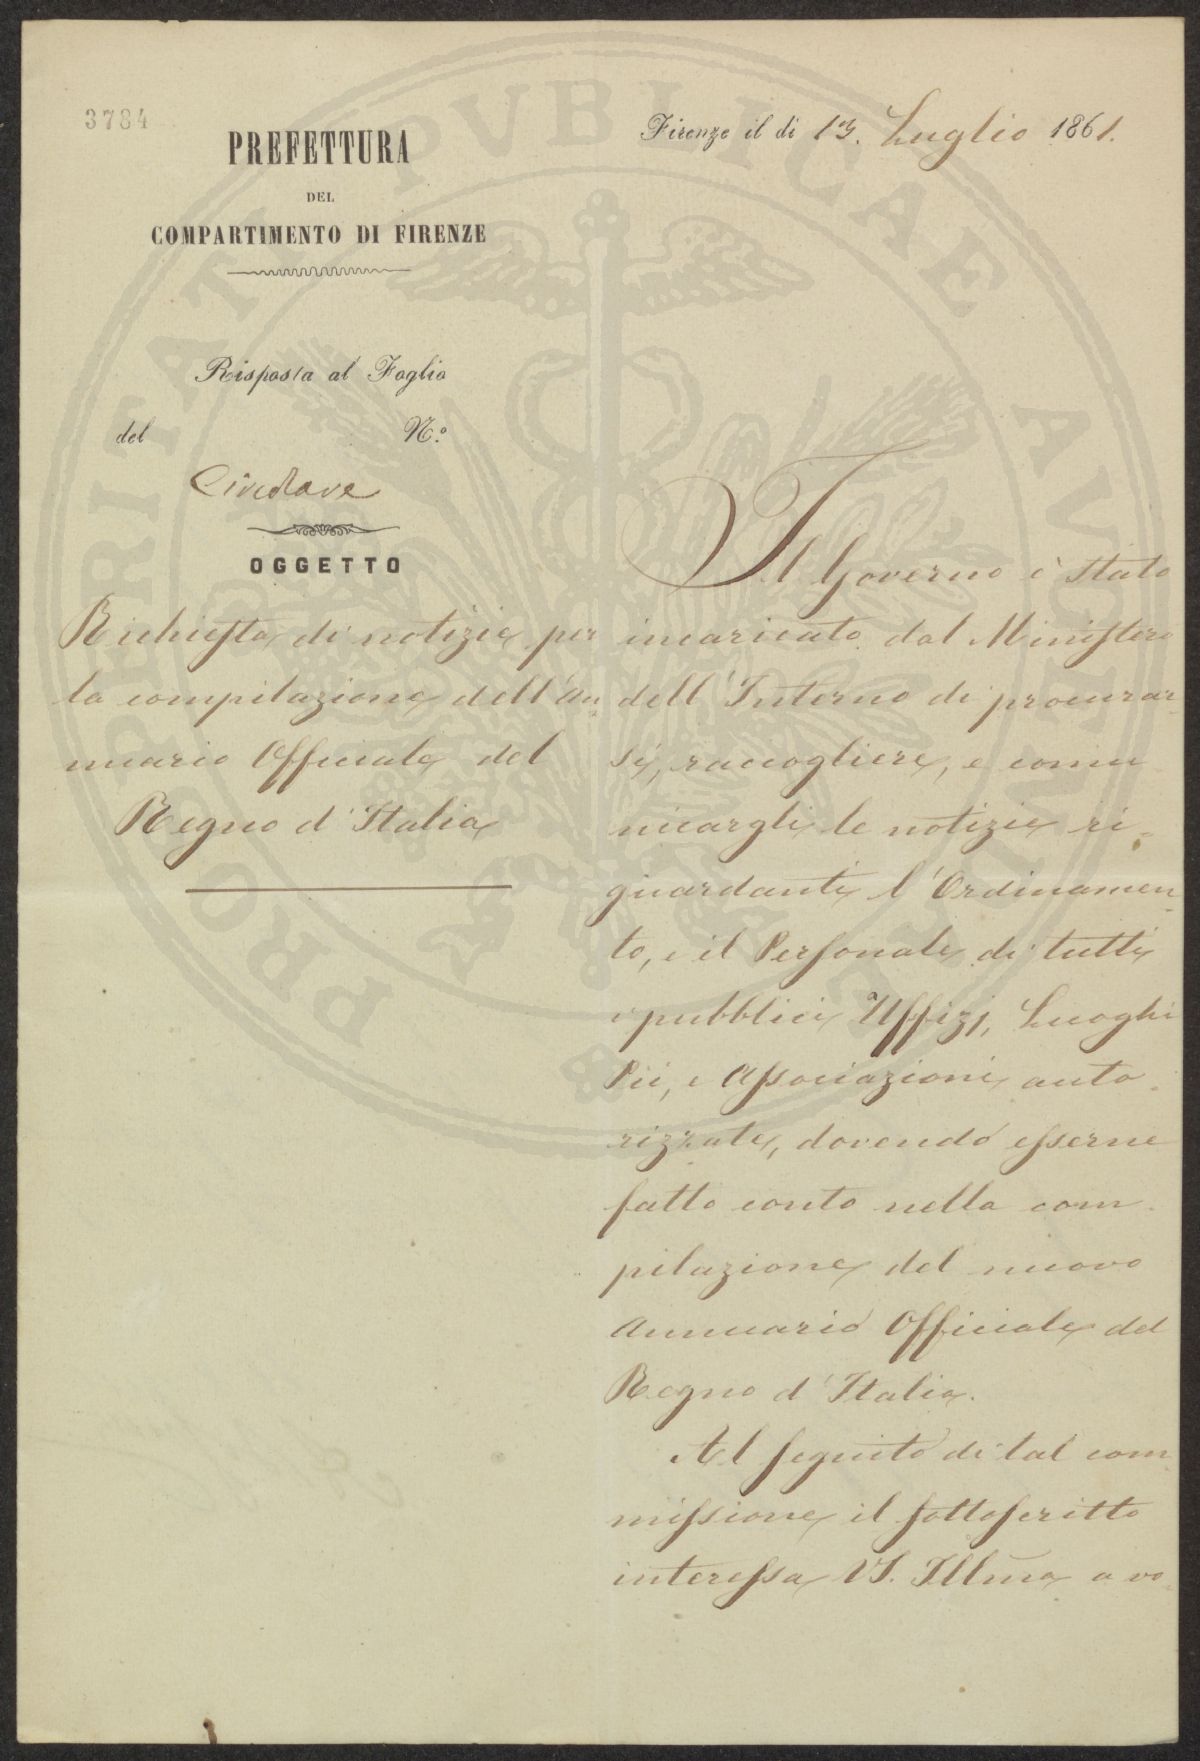 3784
PREFETTURA
DEL
COMPARTIMENTO DI FIRENZE
Firenze il di 13. Luglio 1861.
Risposta al Foglio
del N.º
Circolare
OGGETTO
Richiesta di notizie per
la compilazione dell'An
nuario Officiale del
Regno d'Italia
Il Governo è stato
incaricato dal Ministero
dell'Interno di procurar
si, raccogliere, e comu
nicargli le notizie ri-
guardanti l'Ordinamen
to, e il Personale di tutti
i pubblici Uffizj, Luoghi
Pii, e Associazioni auto
rizzate, dovendo esserne
fatto conto nella com
pilazione del nuovo
Annuario Officiale del
Regno d'Italia.
Al seguito di tal com
missione il sottoscritto
interessa VS. Illma a vo
PROSPERITATI PVBLICAE AVGENDAE